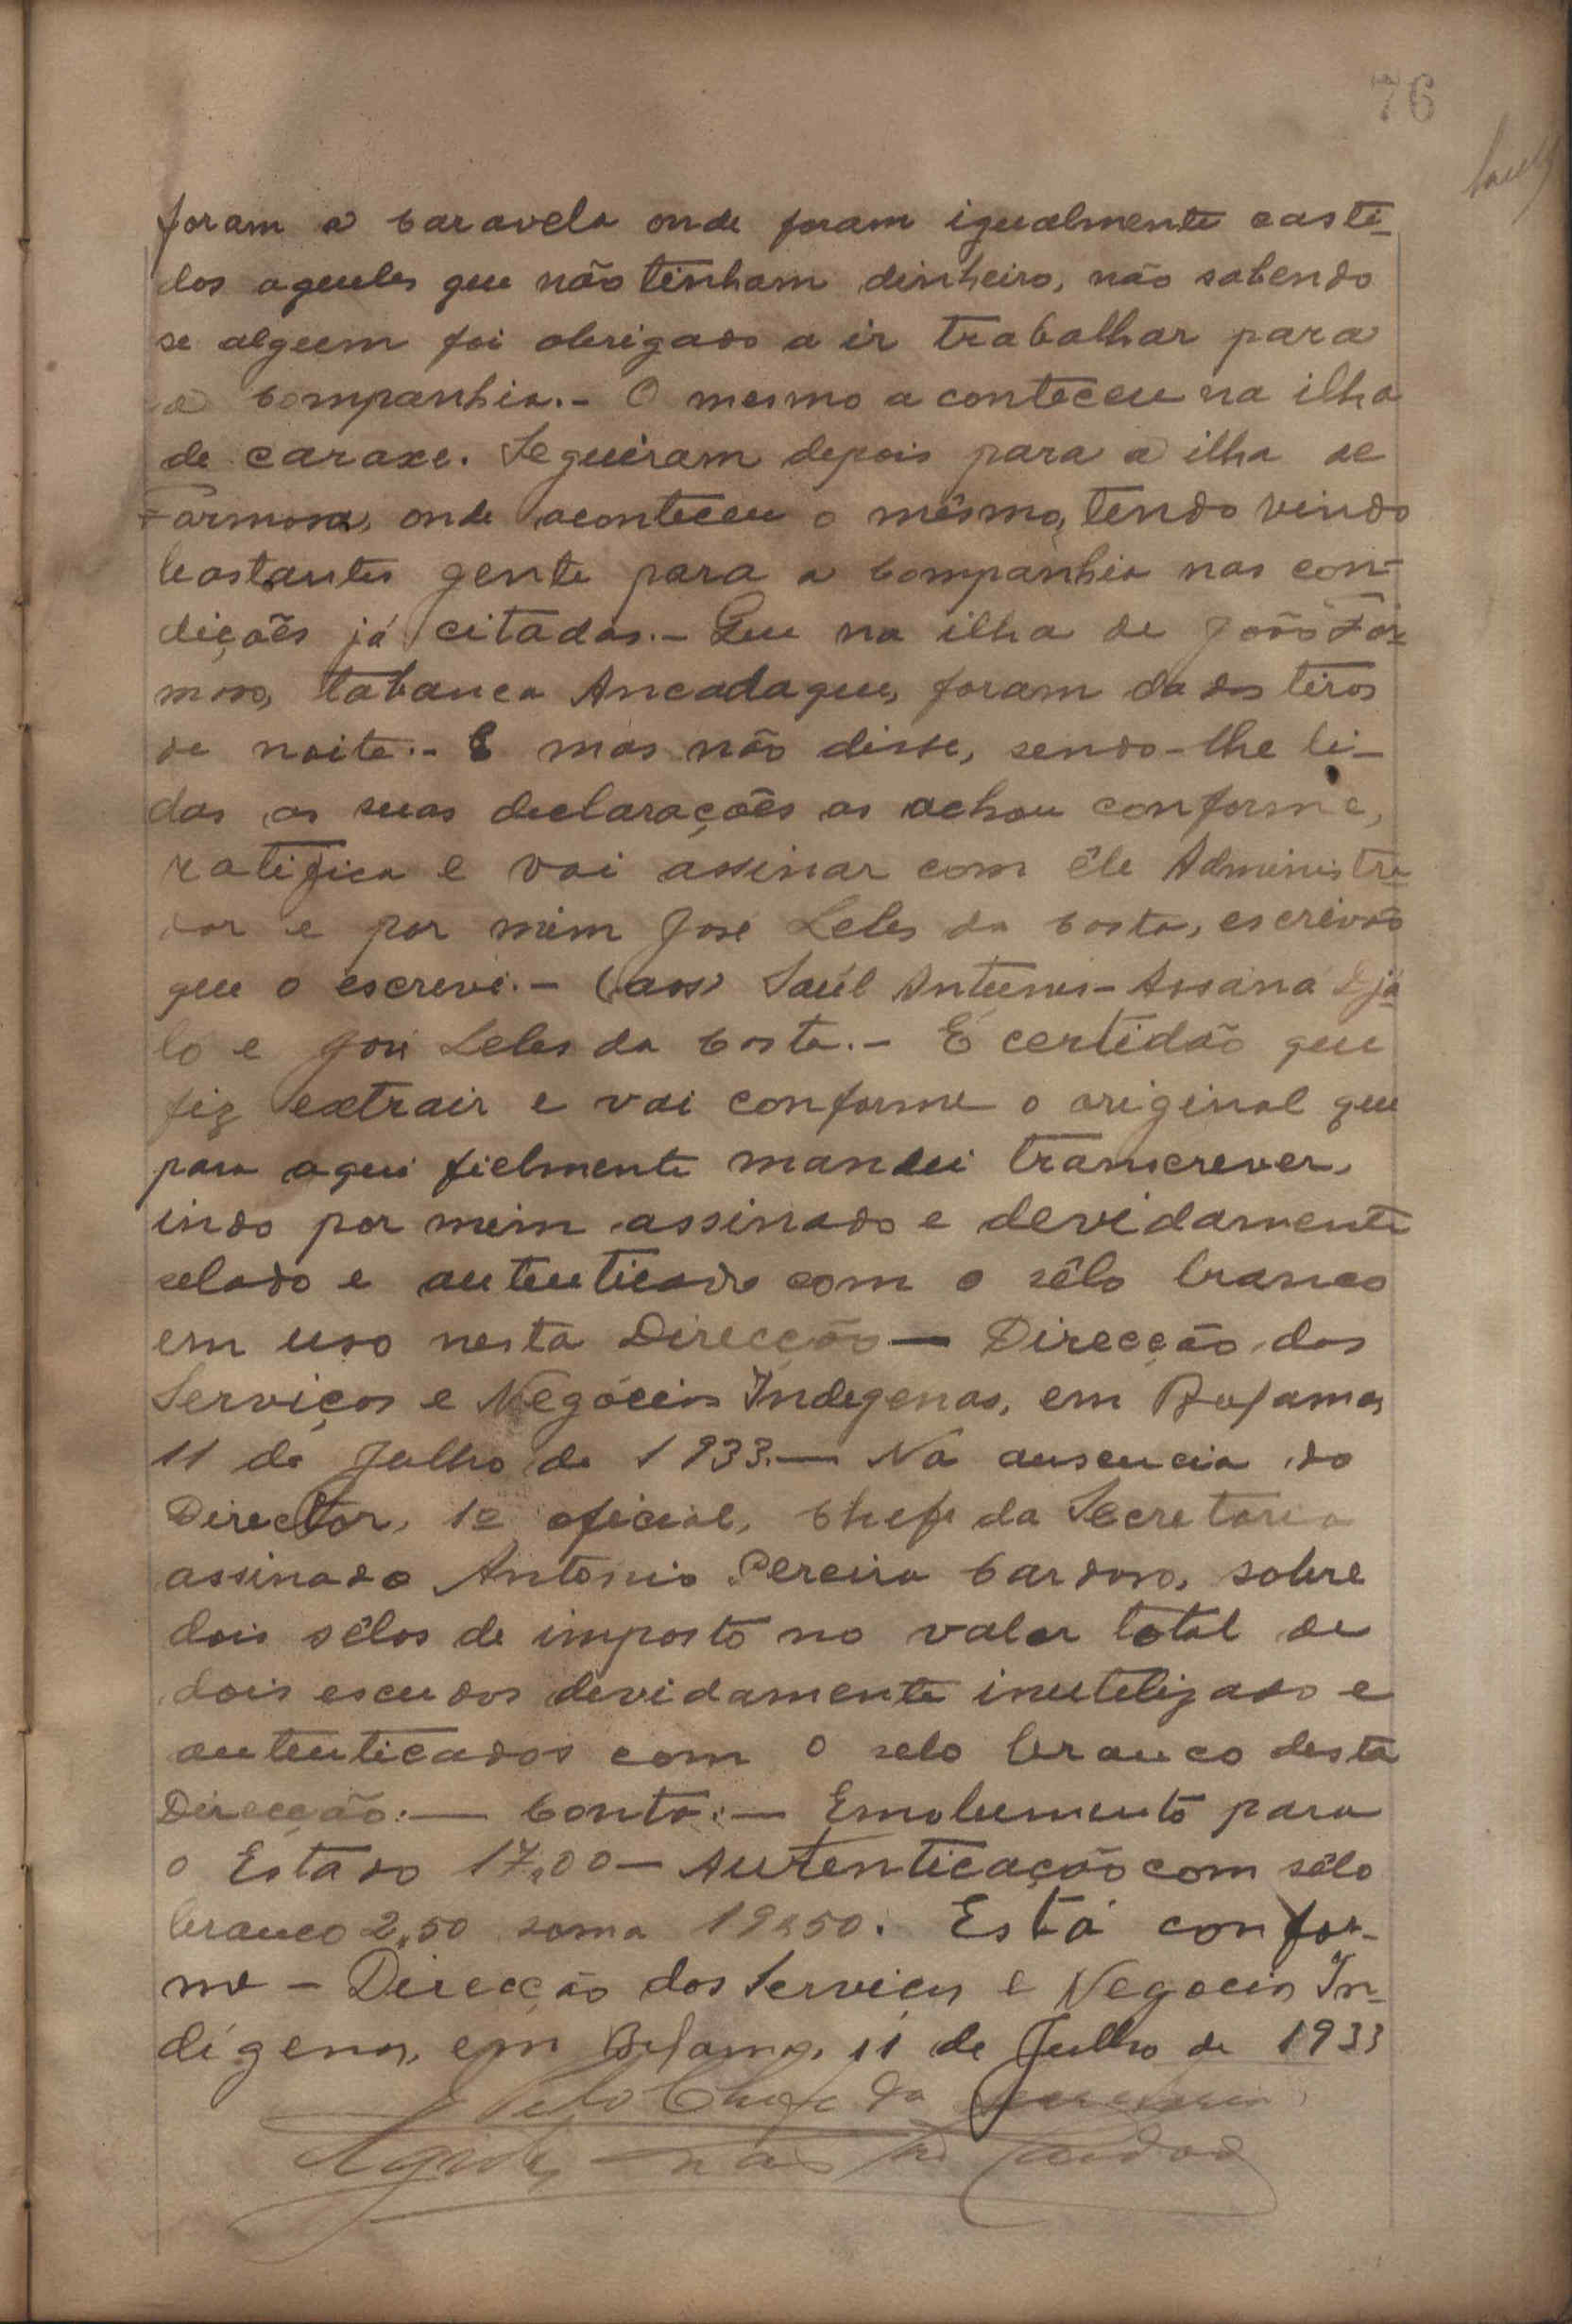 76
foram a Caravela onde foram igualmente casti-
dos aqueles que não tinham dinheiro, não sabendo
se alguem foi obrigado a ir trabalhar para
a Companhia.- O mesmo aconteceu na ilha
de caraxe. Seguiram depois para a ilha de
Formosa, onde aconteceu o mêsmo, tendo vindo
bastantes gente para a Companhia nas con-
dições já citadas.- Que na ilha de João Fór-
moso, tabanca Ancadaque, foram dados tiros
de noite.- E mas não disse, sendo-lhe li-
das as suas declarações as achou conforme,
ratifica e vai assinar com êle Administra-
dor e por mim José Leles da Costa, escrivão
que o escrevi.- (ass) Saúl Antunes- Assana Djá-
lo e José Leles da Costa.- É certidão que
fiz extrair e vai conforme o original que
para aqui fielmente mandei transcrever,
indo por mim assinado e devidamente
selado e autenticado com o sêlo branco
em uso nesta Direcção — Direcção dos
Serviços e Negócios Indegenas, em Bolama,
11 de Julho de 1933.— Na ausencia do
Director, 1º oficial, Chefe da Secretaria
assinado António Pereira Cardoso, sobre
dois sêlos de imposto no valor total de
dois escudos devidamente inutelizado e
autenticados com o selo branco desta
Direcção:— Conta:— Emolumento para
o Estado 17,00 — Autenticação com sêlo
branco 2,50 soma 19$50. Está confor-
me — Direcção dos Serviços e Negocios In-
dígenas, em Bolama, 11 de Julho de 1933
Pelo Chefe da Secretaria,